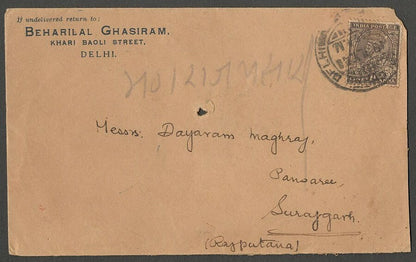 If undelivered return to:
BEHARILAL GHASIRAM,
KHARI BAOLI STREET,
DELHI.
INDIA POSTAGE
DELHI
Messrs. Dayaram Maghraj,
Pansaree,
Surajgarh
(Rajputana)